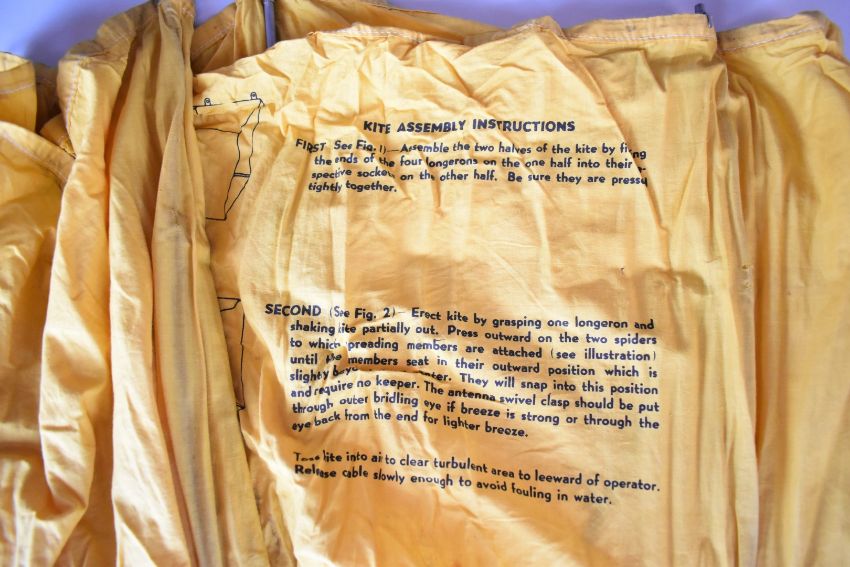 KITE ASSEMBLY INSTRUCTIONS
FIRST See Fig. 1)—Assemble the two halves of the kite by
the ends of the four longerons on the one half into their
on the other half. Be sure they are
tightly together.
SECOND (See Fig. 2)—Erect kite by grasping one longeron and
shaking kite partially out. Press outward on the two spiders
to which spreading members are attached (see illustration)
until the members seat in their outward position which is
slightly They will snap into this position
and require no keeper. The antenna swivel clasp should be put
through outer bridling eye if breeze is strong or through the
eye back from the end for lighter breeze.
kite into air to clear turbulent area to leeward of operator.
Release cable slowly enough to avoid fouling in water.